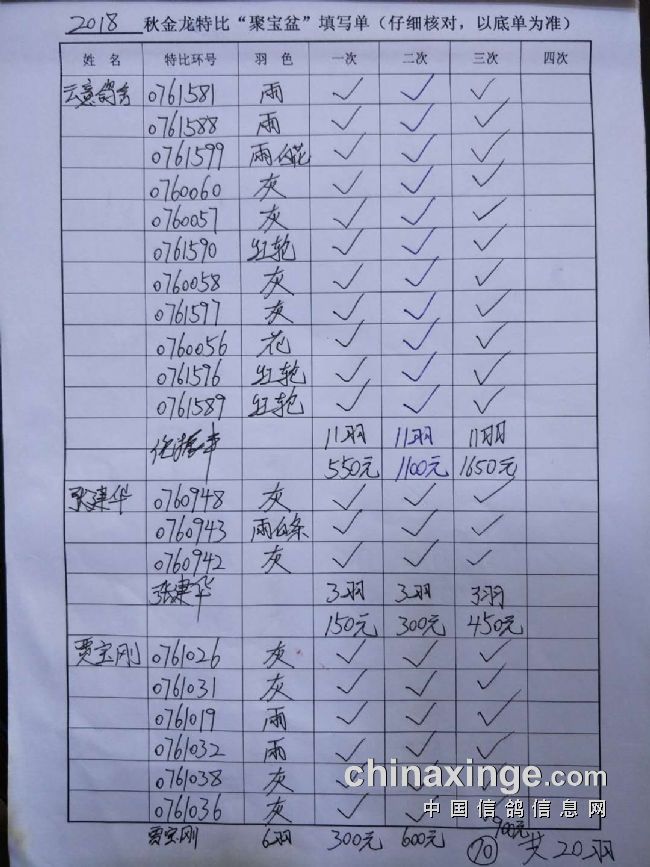 2018 秋金龙特比“聚宝盆”填写单（仔细核对，以底单为准）
姓 名 特比环号 羽 色 一次 二次 三次 四次
云意鸽舍 0761581 雨 ✓ ✓ ✓
0761588 雨 ✓ ✓ ✓
0761599 雨白花 ✓ ✓ ✓
0760060 灰 ✓ ✓ ✓
0760057 灰 ✓ ✓ ✓
0761590 红轮 ✓ ✓ ✓
0760058 灰 ✓ ✓ ✓
0761597 灰 ✓ ✓ ✓
0760056 花 ✓ ✓ ✓
0761576 红轮 ✓ ✓ ✓
0761589 红轮 ✓ ✓ ✓
11羽 11羽 11羽
550元 1100元 1650元
张建华 0760948 灰 ✓ ✓ ✓
0760943 雨白条 ✓ ✓ ✓
0760942 灰 ✓ ✓ ✓
张建华 3羽 3羽 3羽
150元 300元 450元
贾宝刚 0761026 灰 ✓ ✓ ✓
0761031 灰 ✓ ✓ ✓
0761019 雨 ✓ ✓ ✓
0761032 雨 ✓ ✓ ✓
0761038 灰 ✓ ✓ ✓
0761036 灰 ✓ ✓ ✓
贾宝刚 6羽 300元 600元 900元
10 共20羽
chinaxinge.com
中国信鸽信息网